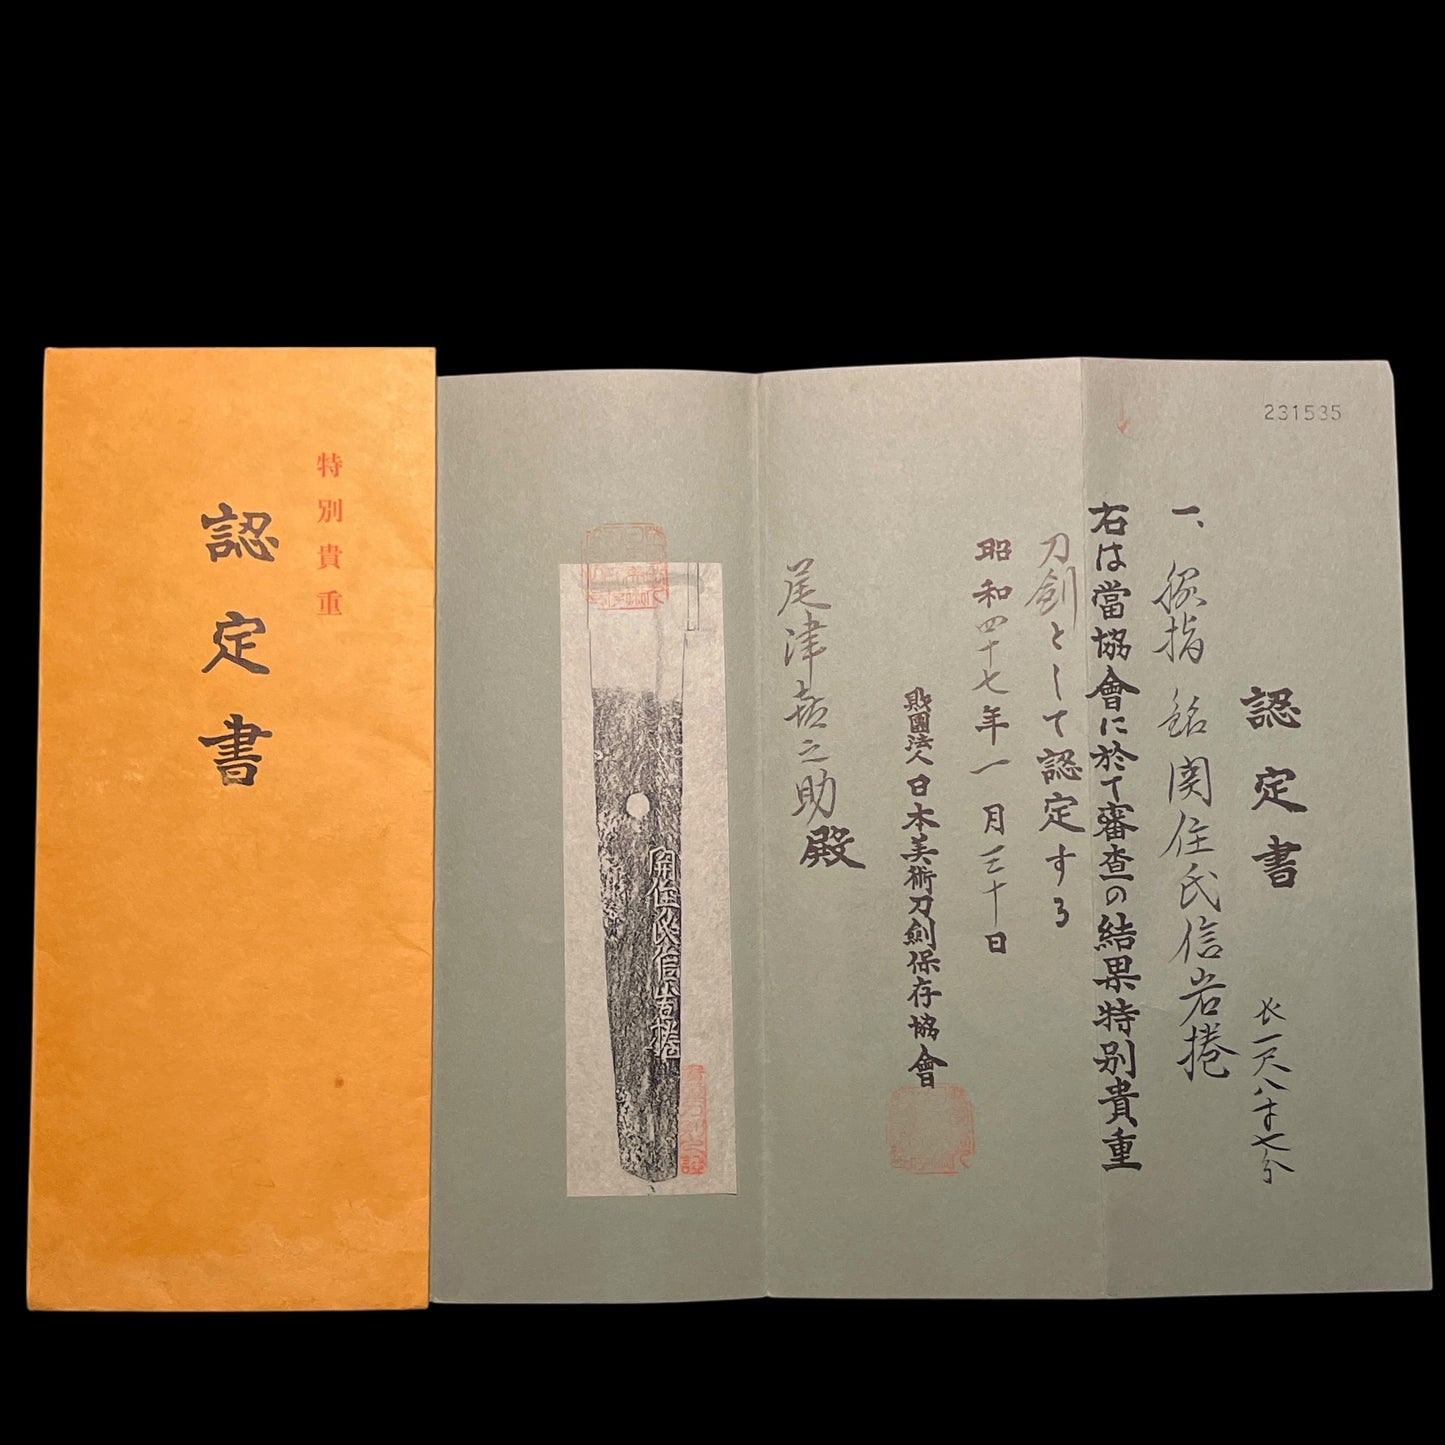 特別貴重
認定書
231535
認定書
一、脇指 銘 関住氏信岩捲
長一尺八寸七分
右は當協會に於て審査の結果特別貴重
刀劍として認定する
昭和四十七年一月三十日
財團法人日本美術刀劍保存協會
尾津喜之助殿
関住氏信岩捲